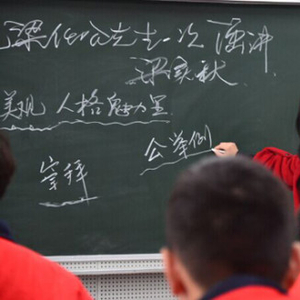 梁任公先生一次演讲
梁实秋
美观 人格魅力星
公举例
崇拜